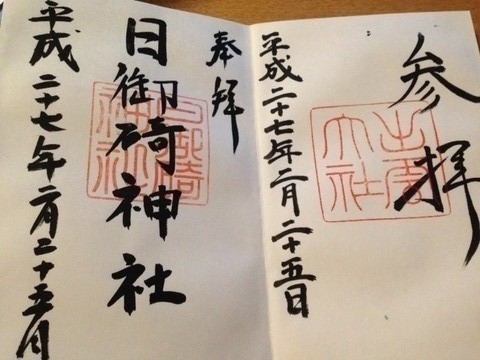 参拝
出雲大社
平成二十七年二月二十五日
奉拝
日御碕神社
日御碕神社
平成二十七年二月二十五日